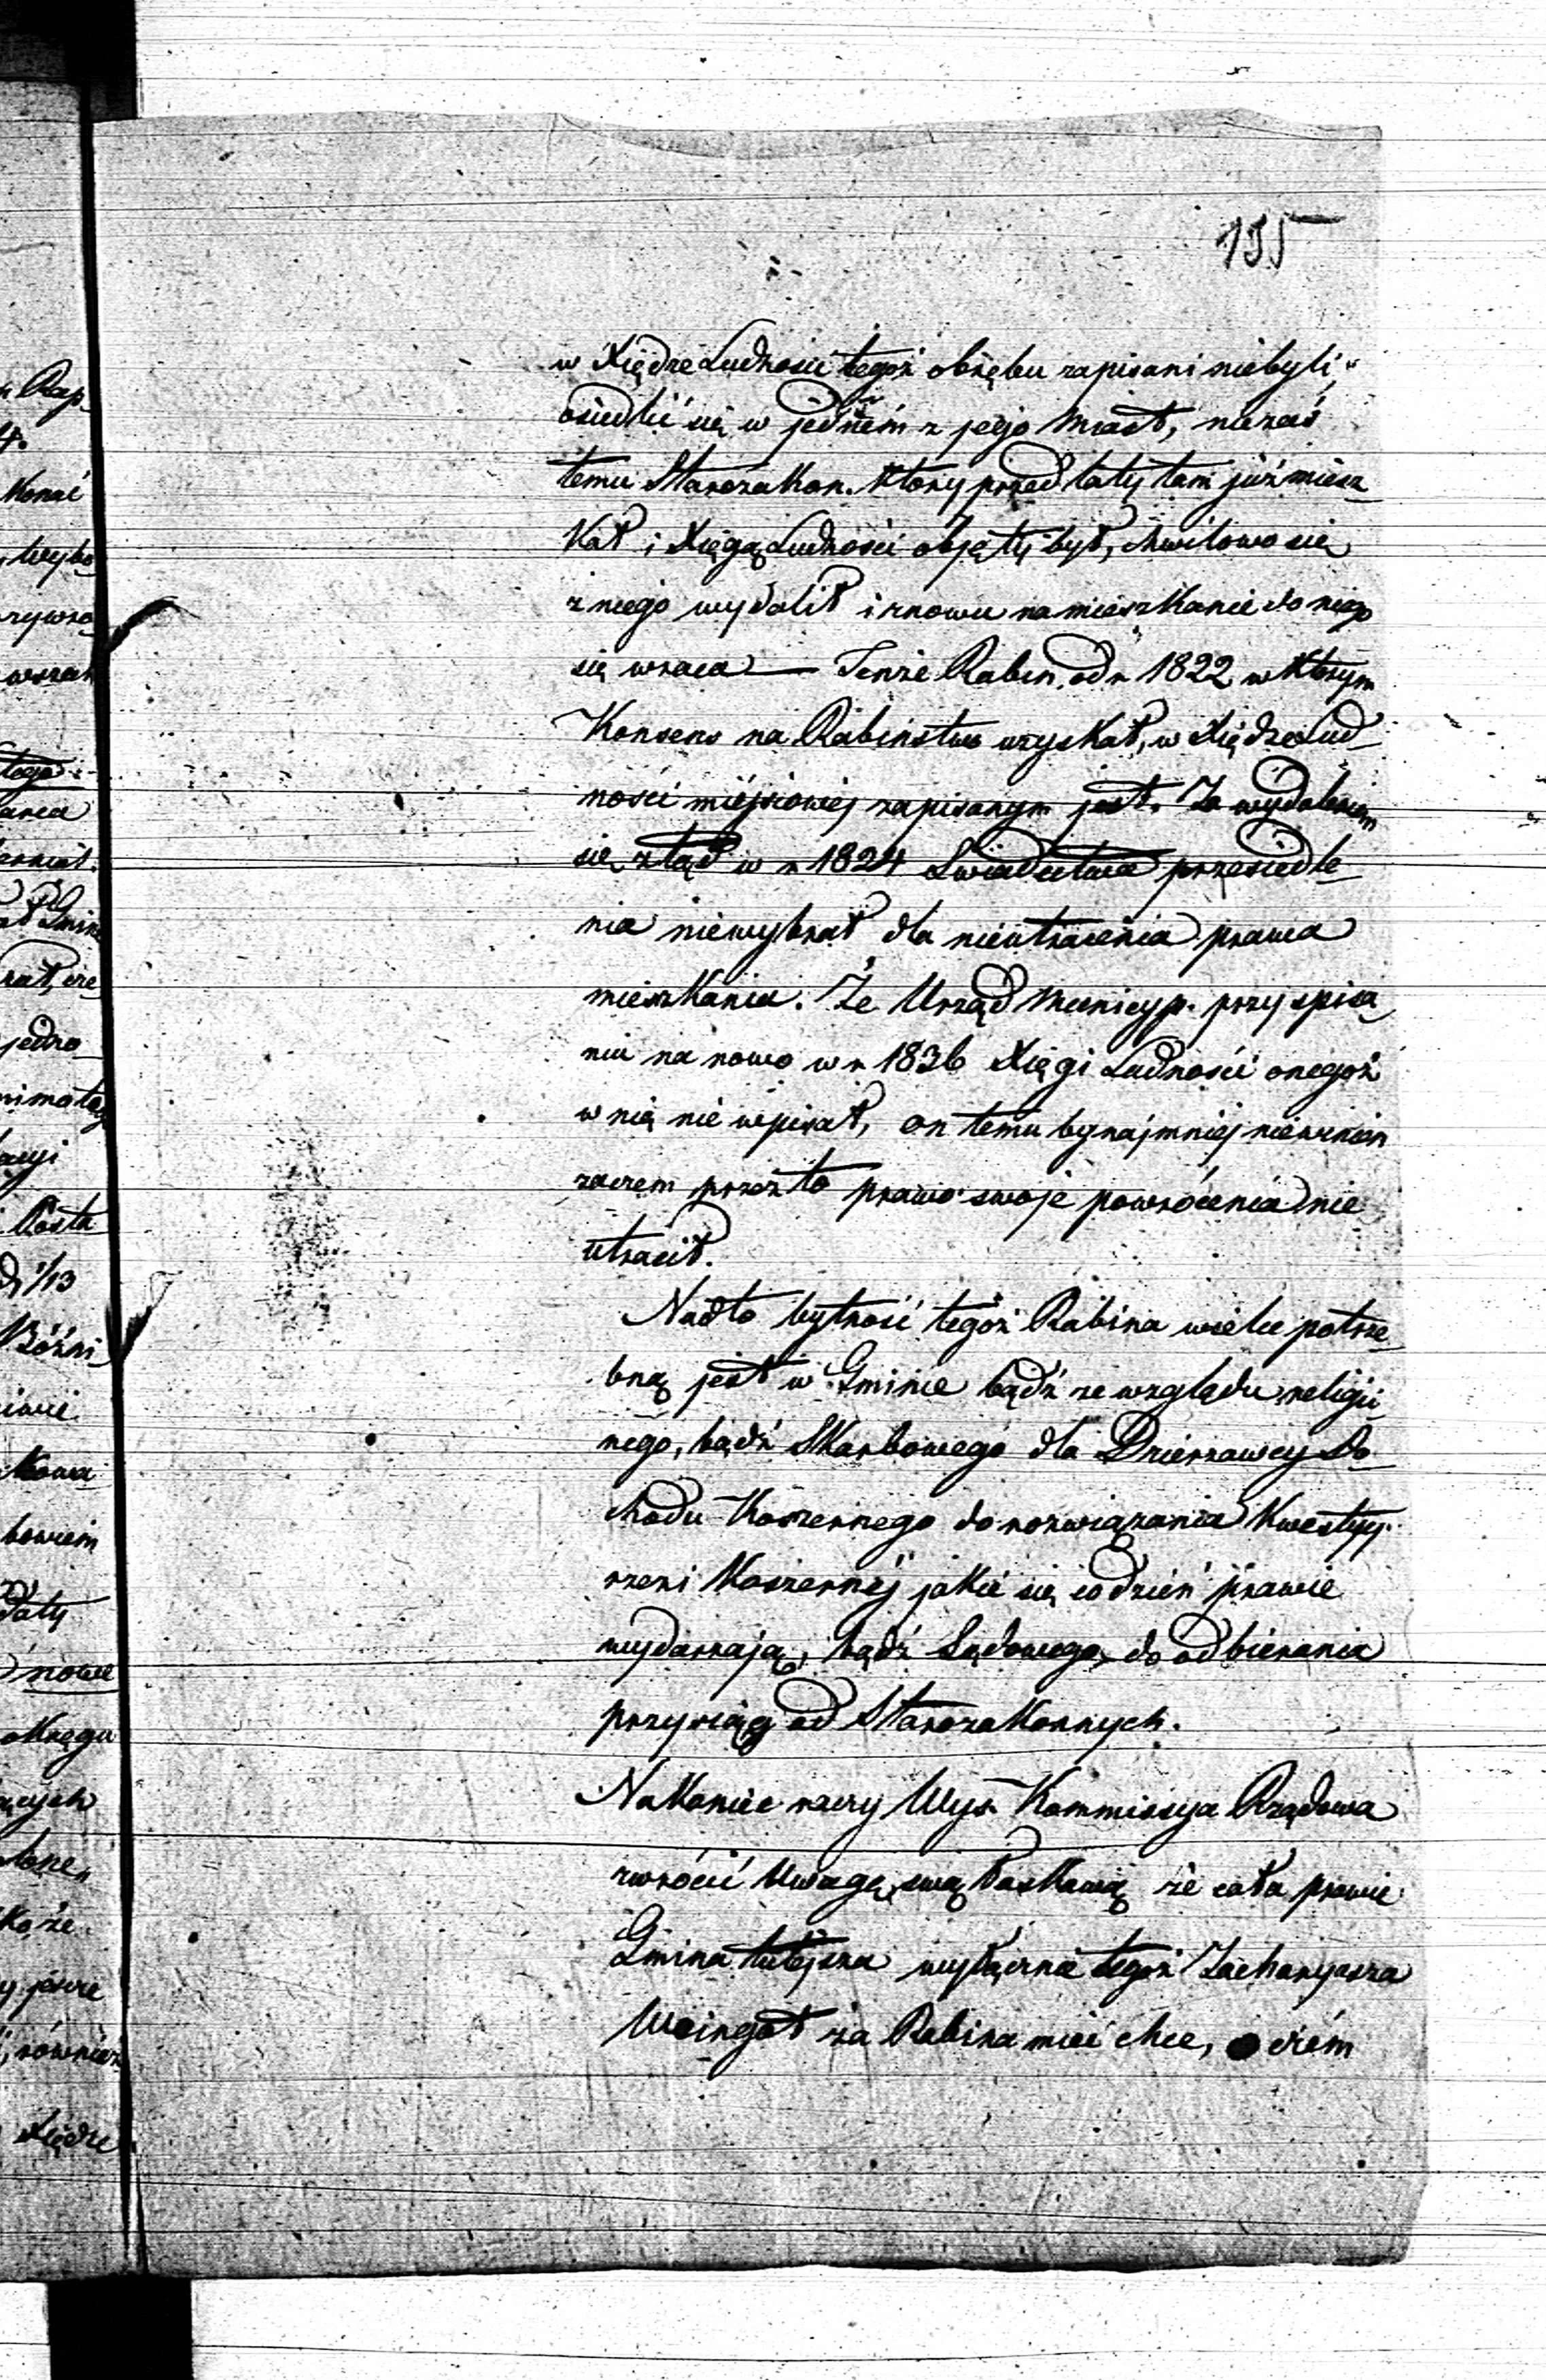 155
w Xiędze Ludności tegoż obrębu zapisani niebyli"
osiedlić się w jedném z jego Miast, niezaś
temu Starozakon. który przed laty tam już miesz-
kał i Xięgą Ludności objęty był, chwilowo się
z niego wydalił i znowu na mieszkanie do niego
się wraca — Tenże Rabin od r 1822 w którym
Konsens na Rabinstwo uzyskał, w Xiędze Lud-
ności miéjscowej zapisanym jest. Za wydaleniem
się ztąd w r 1824 Swiadectwa przesiedle-
nia niewybrał dla nieutracenia prawa
mieszkania. Że Urząd Municyp. przy spisa-
niu na nowo w r 1836 Xięgi Ludności onegoż
w nią nie wpisał, on temu bynajmniéj niewinien
zaczem przez to prawo swoje powrócenia nie
utracił.
Nadto bytność tegoż Rabina wielce potrze-
bną jest w Gminie bądź ze względu religij-
nego, bądź Skarbowego dla Dzierzawcy Do-
chodu Koszernego do rozwiązania Kwestyj
rzezi Koszernéj jakie się codzień prawie
wydarzają, bądź Sądowego do odbierania
przysiąg od Starozakonnych.
Nakoniec raczy Wys. Kommissya Rządowa
zwrócić Uwagę swą łaskawą że cała prawie
Gmina tutéjsza wyłącznie tegoż Zacharyasza
Weingot za Rabina mieć chce, o czém
Rap-
4.
wybo-
tego
jedno-
1/13
Bóżni-
bowiem
daty
nowe
okręgu
również
Xiędze